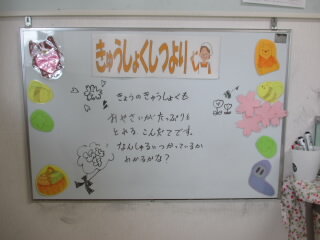 きゅうしょくしつより
きょうのきゅうしょくも
おやさいがたっぷりも
とれる こんだてです。
なんしゅるいつかっているか
わかるかな？